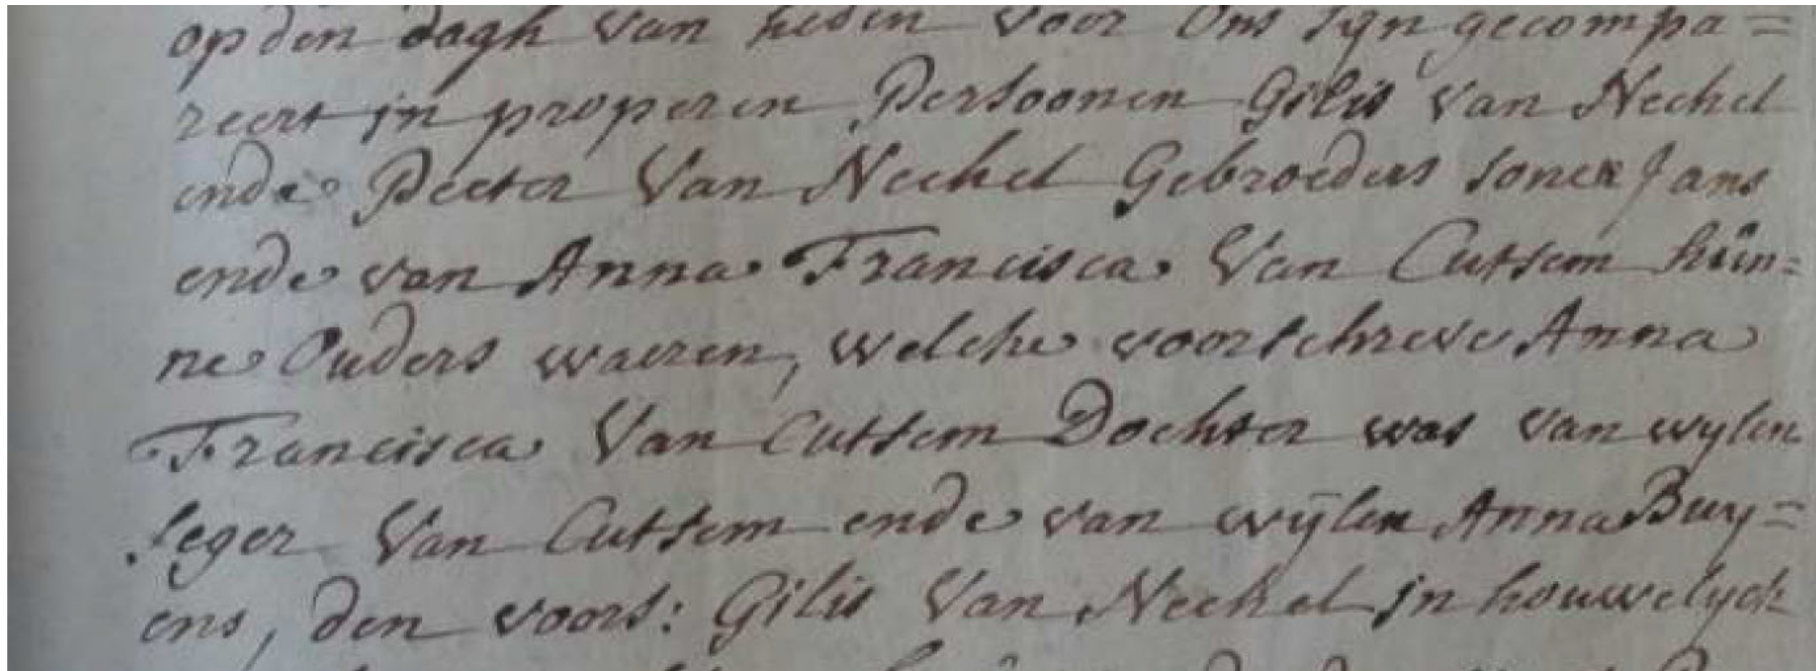 op den dagh van heden voor Ons syn gecompa=
reert in properen Persoonen Gilis Van Nechel
ende Peeter Van Nechel Gebroeders sonen Jans
ende van Anna Francisca Van Cutsem hun=
ne Ouders waeren, welcke voorschreve Anna
Francisca Van Cutsem Dochter was van wylen
Seger Van Cutsem ende van wylen Anna Buy=
ens, den voors: Gilis Van Neckel in houwelyck